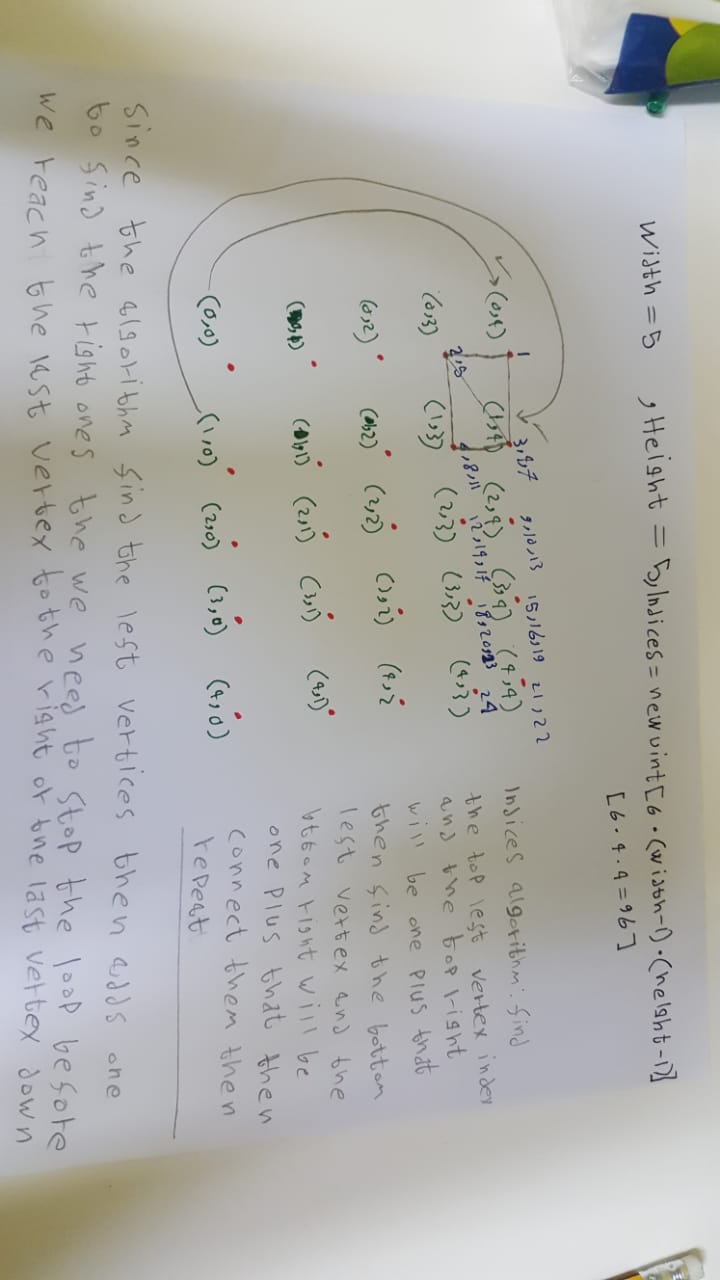 Width = 5 , Height = 5, Indices = new uint [6 · (width-1) · (height-1)]
[6 · 4 · 4 = 96]
1 3,6,7 9,10,13 15,16,19 21,22
(0,4) (1,4) (2,4) (3,4) (4,4)
2,5 4,8,11 12,14,17 18,20,23 24
(0,3) (1,3) (2,3) (3,3) (4,3)
(0,2) (1,2) (2,2) (3,2) (4,2)
(0,1) (1,1) (2,1) (3,1) (4,1)
(0,0) (1,0) (2,0) (3,0) (4,0)
Indices algorithm: find
the top left vertex index
and the top right
will be one plus that
then find the bottom
left vertex and the
bttom right will be
one plus that then
connect them then
repeat
Since the algorithm find the left vertices then adds one
to find the right ones the we need to stop the loop before
we reach the last vertex to the right or the last vertex down